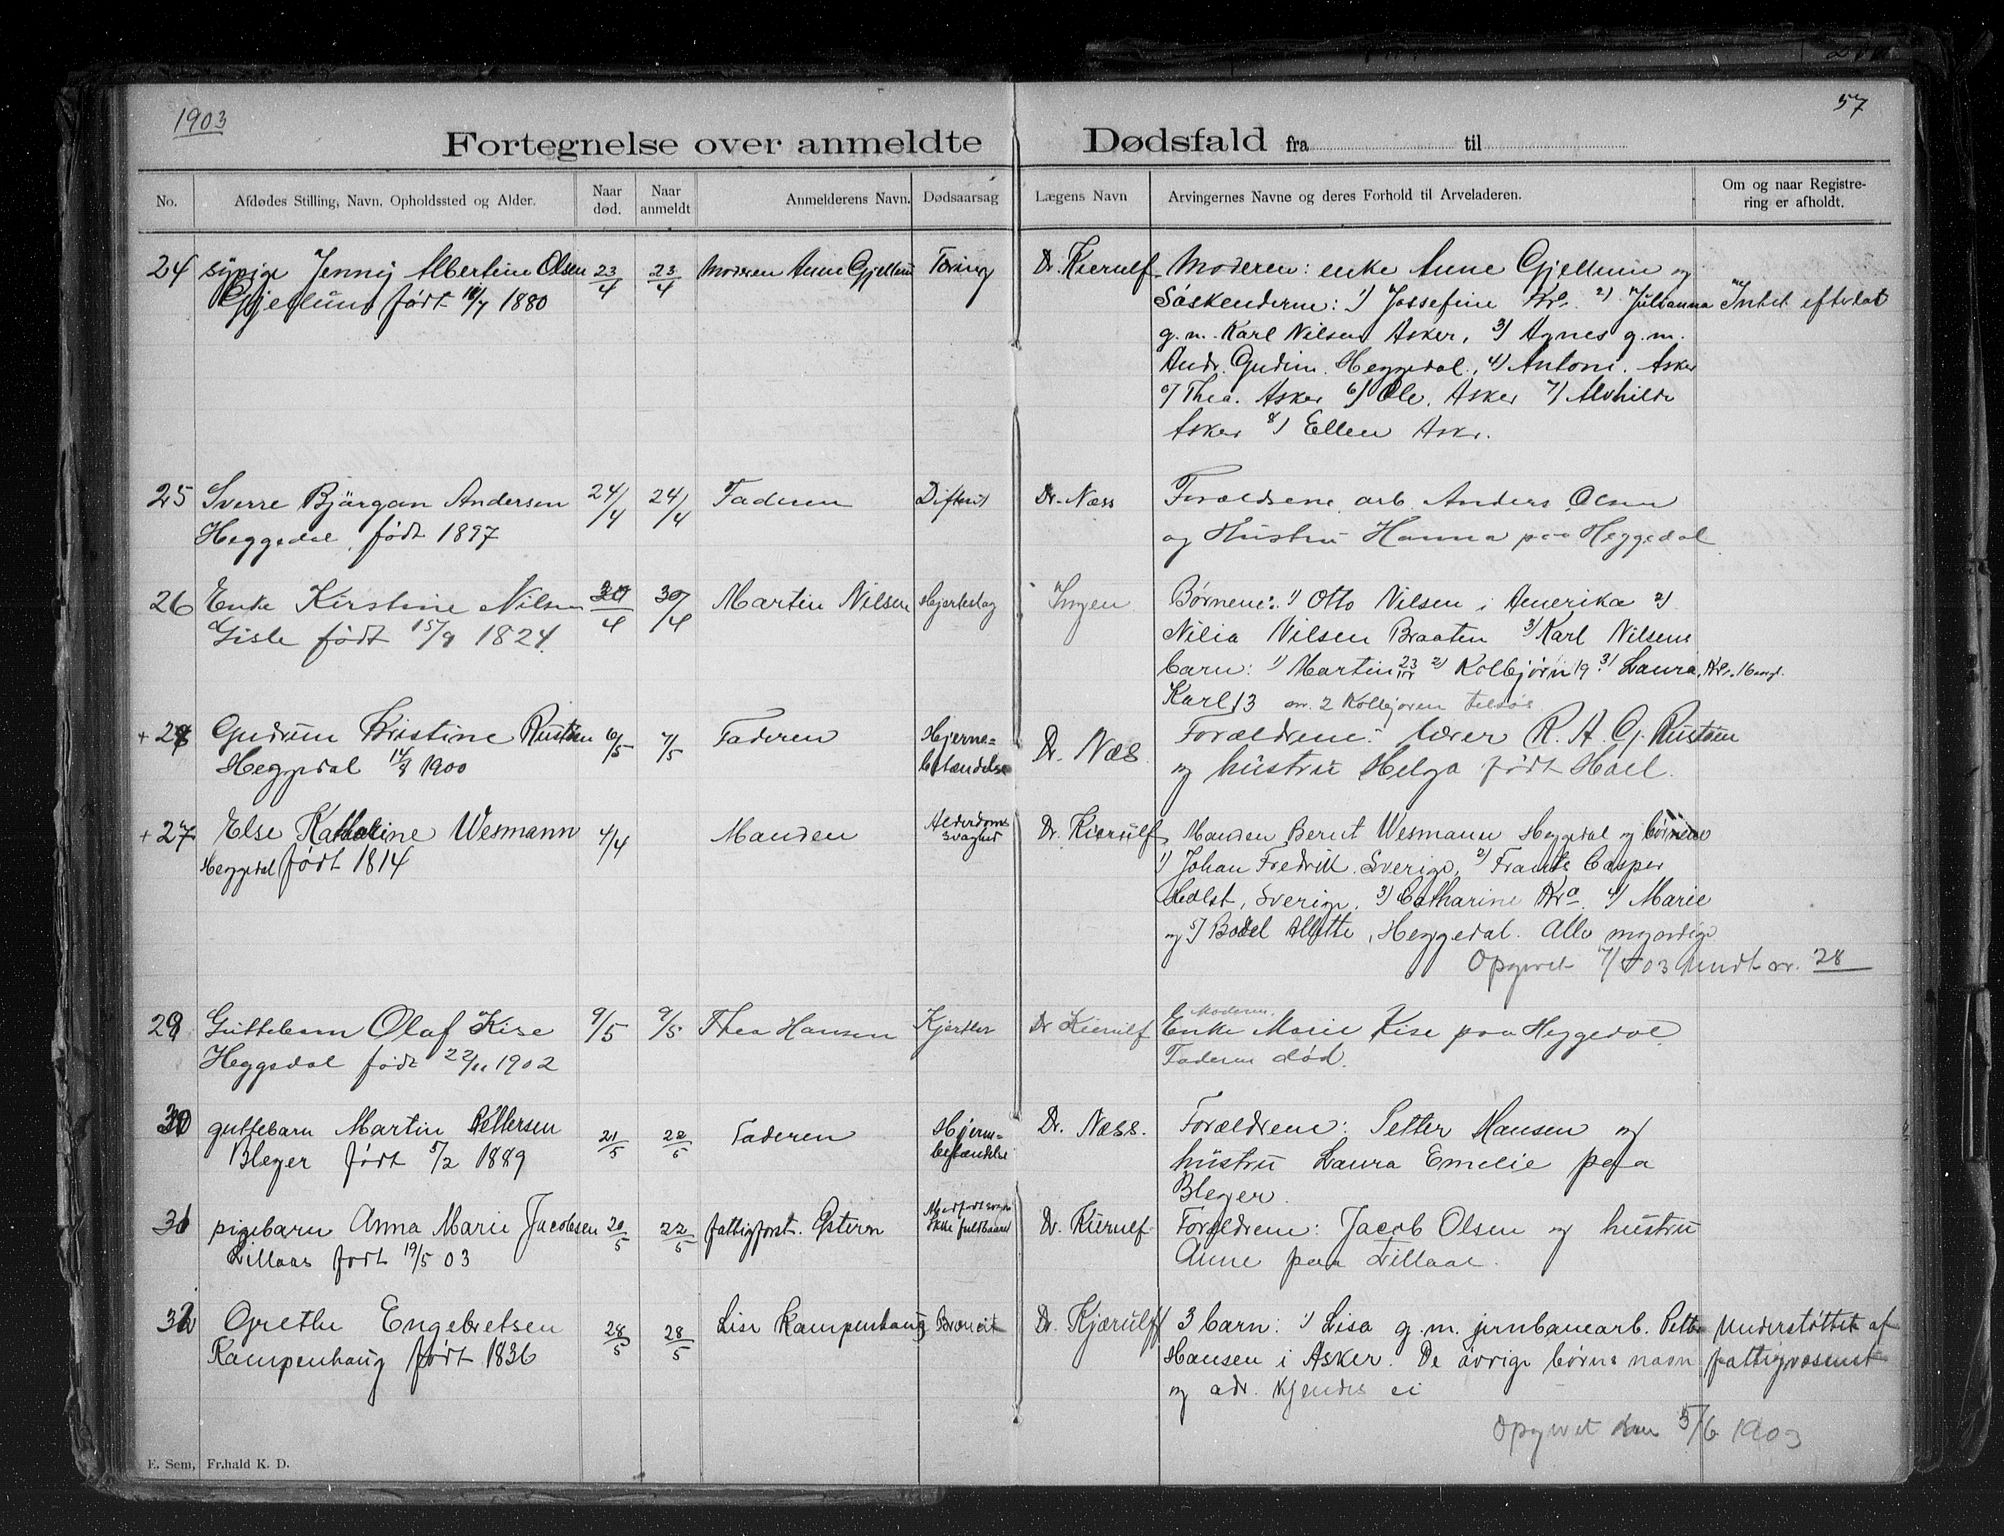 1903
57
Fortegnelse over anmeldte Dødsfald fra til
No.
Afdødes Stilling, Navn, Opholdssted og Alder.
Naar død.
Naar anmeldt
Anmelderens Navn.
Dødsaarsag
Lægens Navn
Arvingernes Navne og deres Forhold til Arveladeren.
Om og naar Registrering er afholdt.
24 sypige Jenny Albertine Olsen 23/4 23/4 Moderen Anne Gjellum Tæring Dr. Kierulf Moderen: enke Anne Gjellum og
Gjellum født 18/7 1880 Søskenderne: 1) Jossefine Kra. 2) Julianna Intet efterlat
g. m. Karl Nilsen Asker, 3) Agnes g. m.
Andr. Gudim. Heggedal, 4) Antom. Asker
5) Thea. Asker 6) Ole. Asker 7) Alvhilde
Asker 8) Ellen Askr.
25 Sverre Bjårgan Andersen 24/4 24/4 Faderen Difterit Dr. Næss Forældrene arb. Anders Olsen
Heggedal, født 1897 og Hustru Hanna paa Heggedal
26 Enke Kirstine Nilsen 30/4 30/4 Martin Nilsen Hjerteslag Ingen Børnene: 1) Otto Nilsen i Amerika 2)
Gisle født 15/9 1824 Nilia Nilsen Braaten 3) Karl Nilsens
barn: 1) Martin 23 2) Kolbjørn 19 3) Laura, Kr.
Karl 13 2 Kolbjøren
+ 28 Gudrun Kristine Rustøen 6/5 7/5 Faderen Hjerne= Dr. Næs Forældrene: lærer R. A. G. Rustøen
Heggedal 14/9 1900 betændelse og hustru Helga født Hoel.
+ 27 Else Kathaline Wesmann 4/4 Manden Alderdoms Dr. Kierulf Manden Bernt Wesmann Heggedal og børnene
Heggedal født 1814 svaghed 1) Johan Fredrik. Sverige, 2) Frants Casper
Holst, Sverige. 3) Catharine Kra 4) Marie
og 5) Bodel Alette, Heggedal. Alle myndige
Opgivet 7/5 03 undt nr. 28
29 Guttebarn Olaf Kise 9/5 9/5 Thea Hansen Kjertler Dr Kierulf Moderen
Enke Marie Kise paa Heggedal
Heggedal født 22/11 1902 Faderen død.
30 guttebarn Martin Pettersen 21/5 22/5 Faderen Hjerne- Dr. Næss. Forældrene: Petter Hansen og
Bleger født 5/2 1889 betændelse hustru Laura Emelie paa
Bleger.
31 pigebarn Anna Marie Jacobsen 20/5 22/5 fattigforst. Østern Medfødt svagh. ikke fuldbaaret Dr. Kierulf Forældrene: Jacob Olsen og hustru
Lillaas født 19/5 03 Anne paa Lillaas.
32 Grethe Engebretsen 28/5 28/5 Lise Kampenhaug Dr. Kjærulf 3 barn: 1) Lisa g. m. jernbanearb. Petter Understøttet af
Kampenhaug født 1836 Hansen i Asker. De øvrige børns navn fattigvæsenet
og adr. kjendes ei
Opgivet den 5/6 1903
E. Sem, Fr.hald K. D.